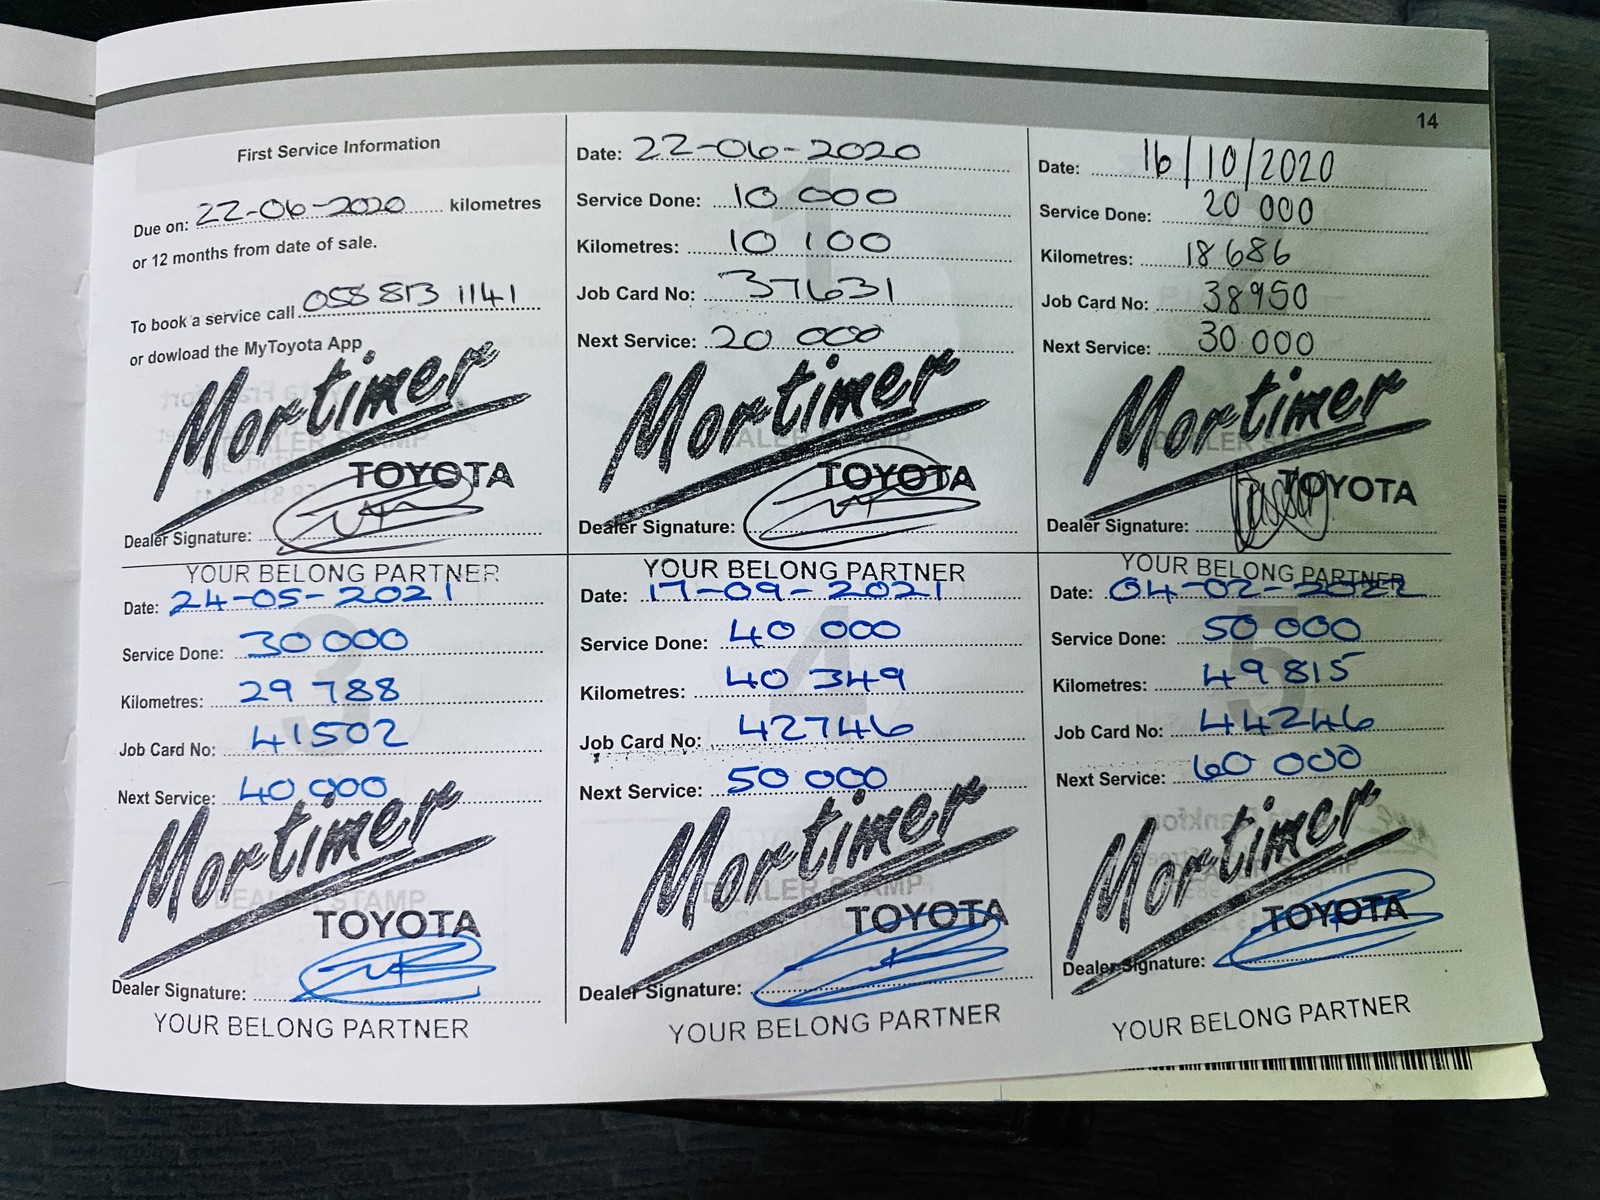 14
First Service Information
Due on: 22-06-2020 kilometres
or 12 months from date of sale.
To book a service call 058 813 1141
or dowload the MyToyota App
Mortimer
TOYOTA
Dealer Signature:
YOUR BELONG PARTNER
Date: 22-06-2020
Service Done: 10 000
Kilometres: 10 100
Job Card No: 37631
Next Service: 20 000
DEALER STAMP
Mortimer
TOYOTA
Dealer Signature:
YOUR BELONG PARTNER
Date: 16/10/2020
Service Done: 20 000
Kilometres: 18 686
Job Card No: 38950
Next Service: 30 000
DEALER STAMP
Mortimer
TOYOTA
Dealer Signature:
YOUR BELONG PARTNER
3
Date: 24-05-2021
Service Done: 30 000
Kilometres: 29 788
Job Card No: 41502
Next Service: 40 000
DEALER STAMP
Mortimer
TOYOTA
Dealer Signature:
YOUR BELONG PARTNER
4
Date: 17-09-2021
Service Done: 40 000
Kilometres: 40 349
Job Card No: 42746
Next Service: 50 000
DEALER STAMP
Mortimer
TOYOTA
Dealer Signature:
YOUR BELONG PARTNER
5
Date: 04-02-2022
Service Done: 50 000
Kilometres: 49 815
Job Card No: 44246
Next Service: 60 000
Mortimer
TOYOTA
Dealer Signature:
YOUR BELONG PARTNER